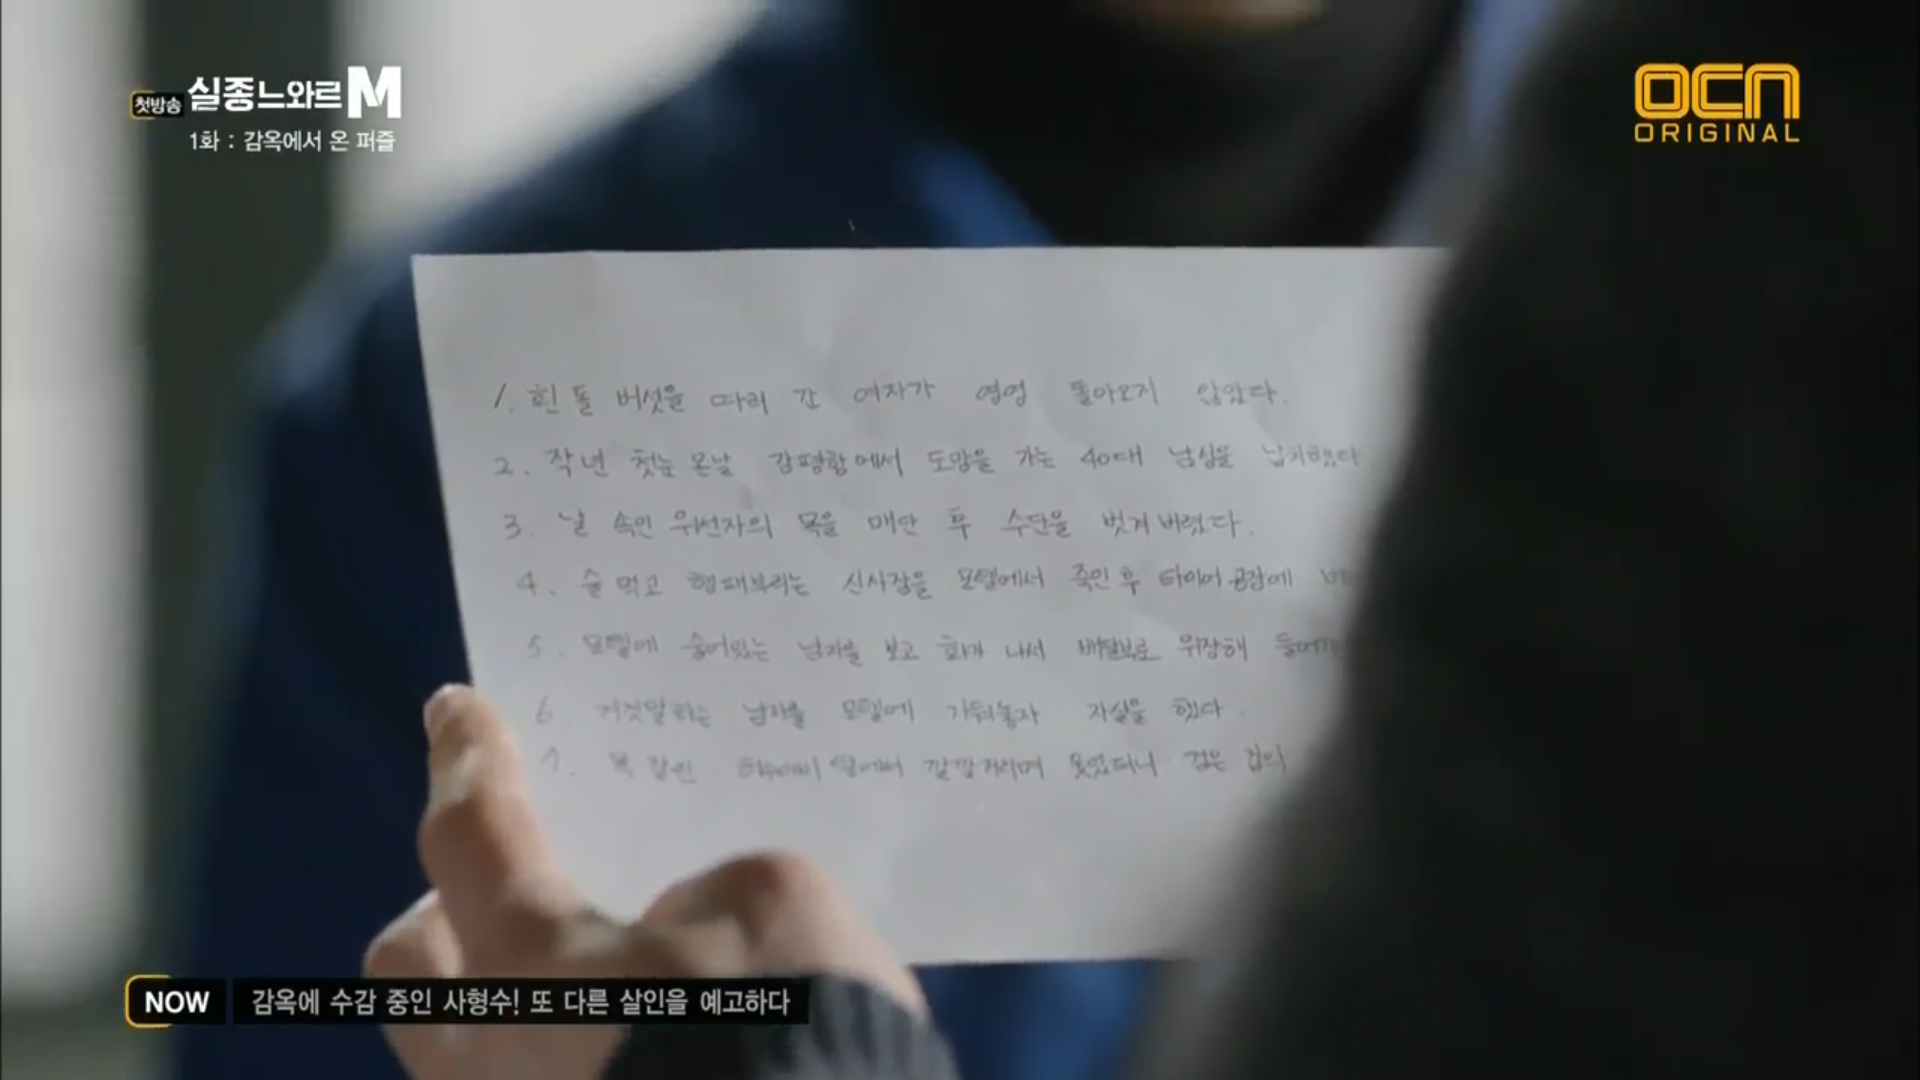 첫방송 실종느와르 M
1화 : 감옥에서 온 퍼즐
OCN
ORIGINAL
1. 흰 돌 버섯을 따러 간 여자가 영영 돌아오지 않았다.
2. 작년 첫눈 온날 강평항에서 도망을 가는 40대 남성을 납치했다
3. 날 속인 위선자의 목을 매단 후 수단을 벗겨버렸다.
4. 술 먹고 행패부리는 신사장을 모텔에서 죽인 후 타이어 공장에
5. 모텔에 숨어있는 남자를 보고 화가 나서 배달부로 위장해 들어가
6. 거짓말하는 남자를 모텔에 가둬놓자 자살을 했다.
7. 목 잘린 허수아비 앞에서 깔깔거리며 웃었더니 검은 집의
NOW 감옥에 수감 중인 사형수! 또 다른 살인을 예고하다